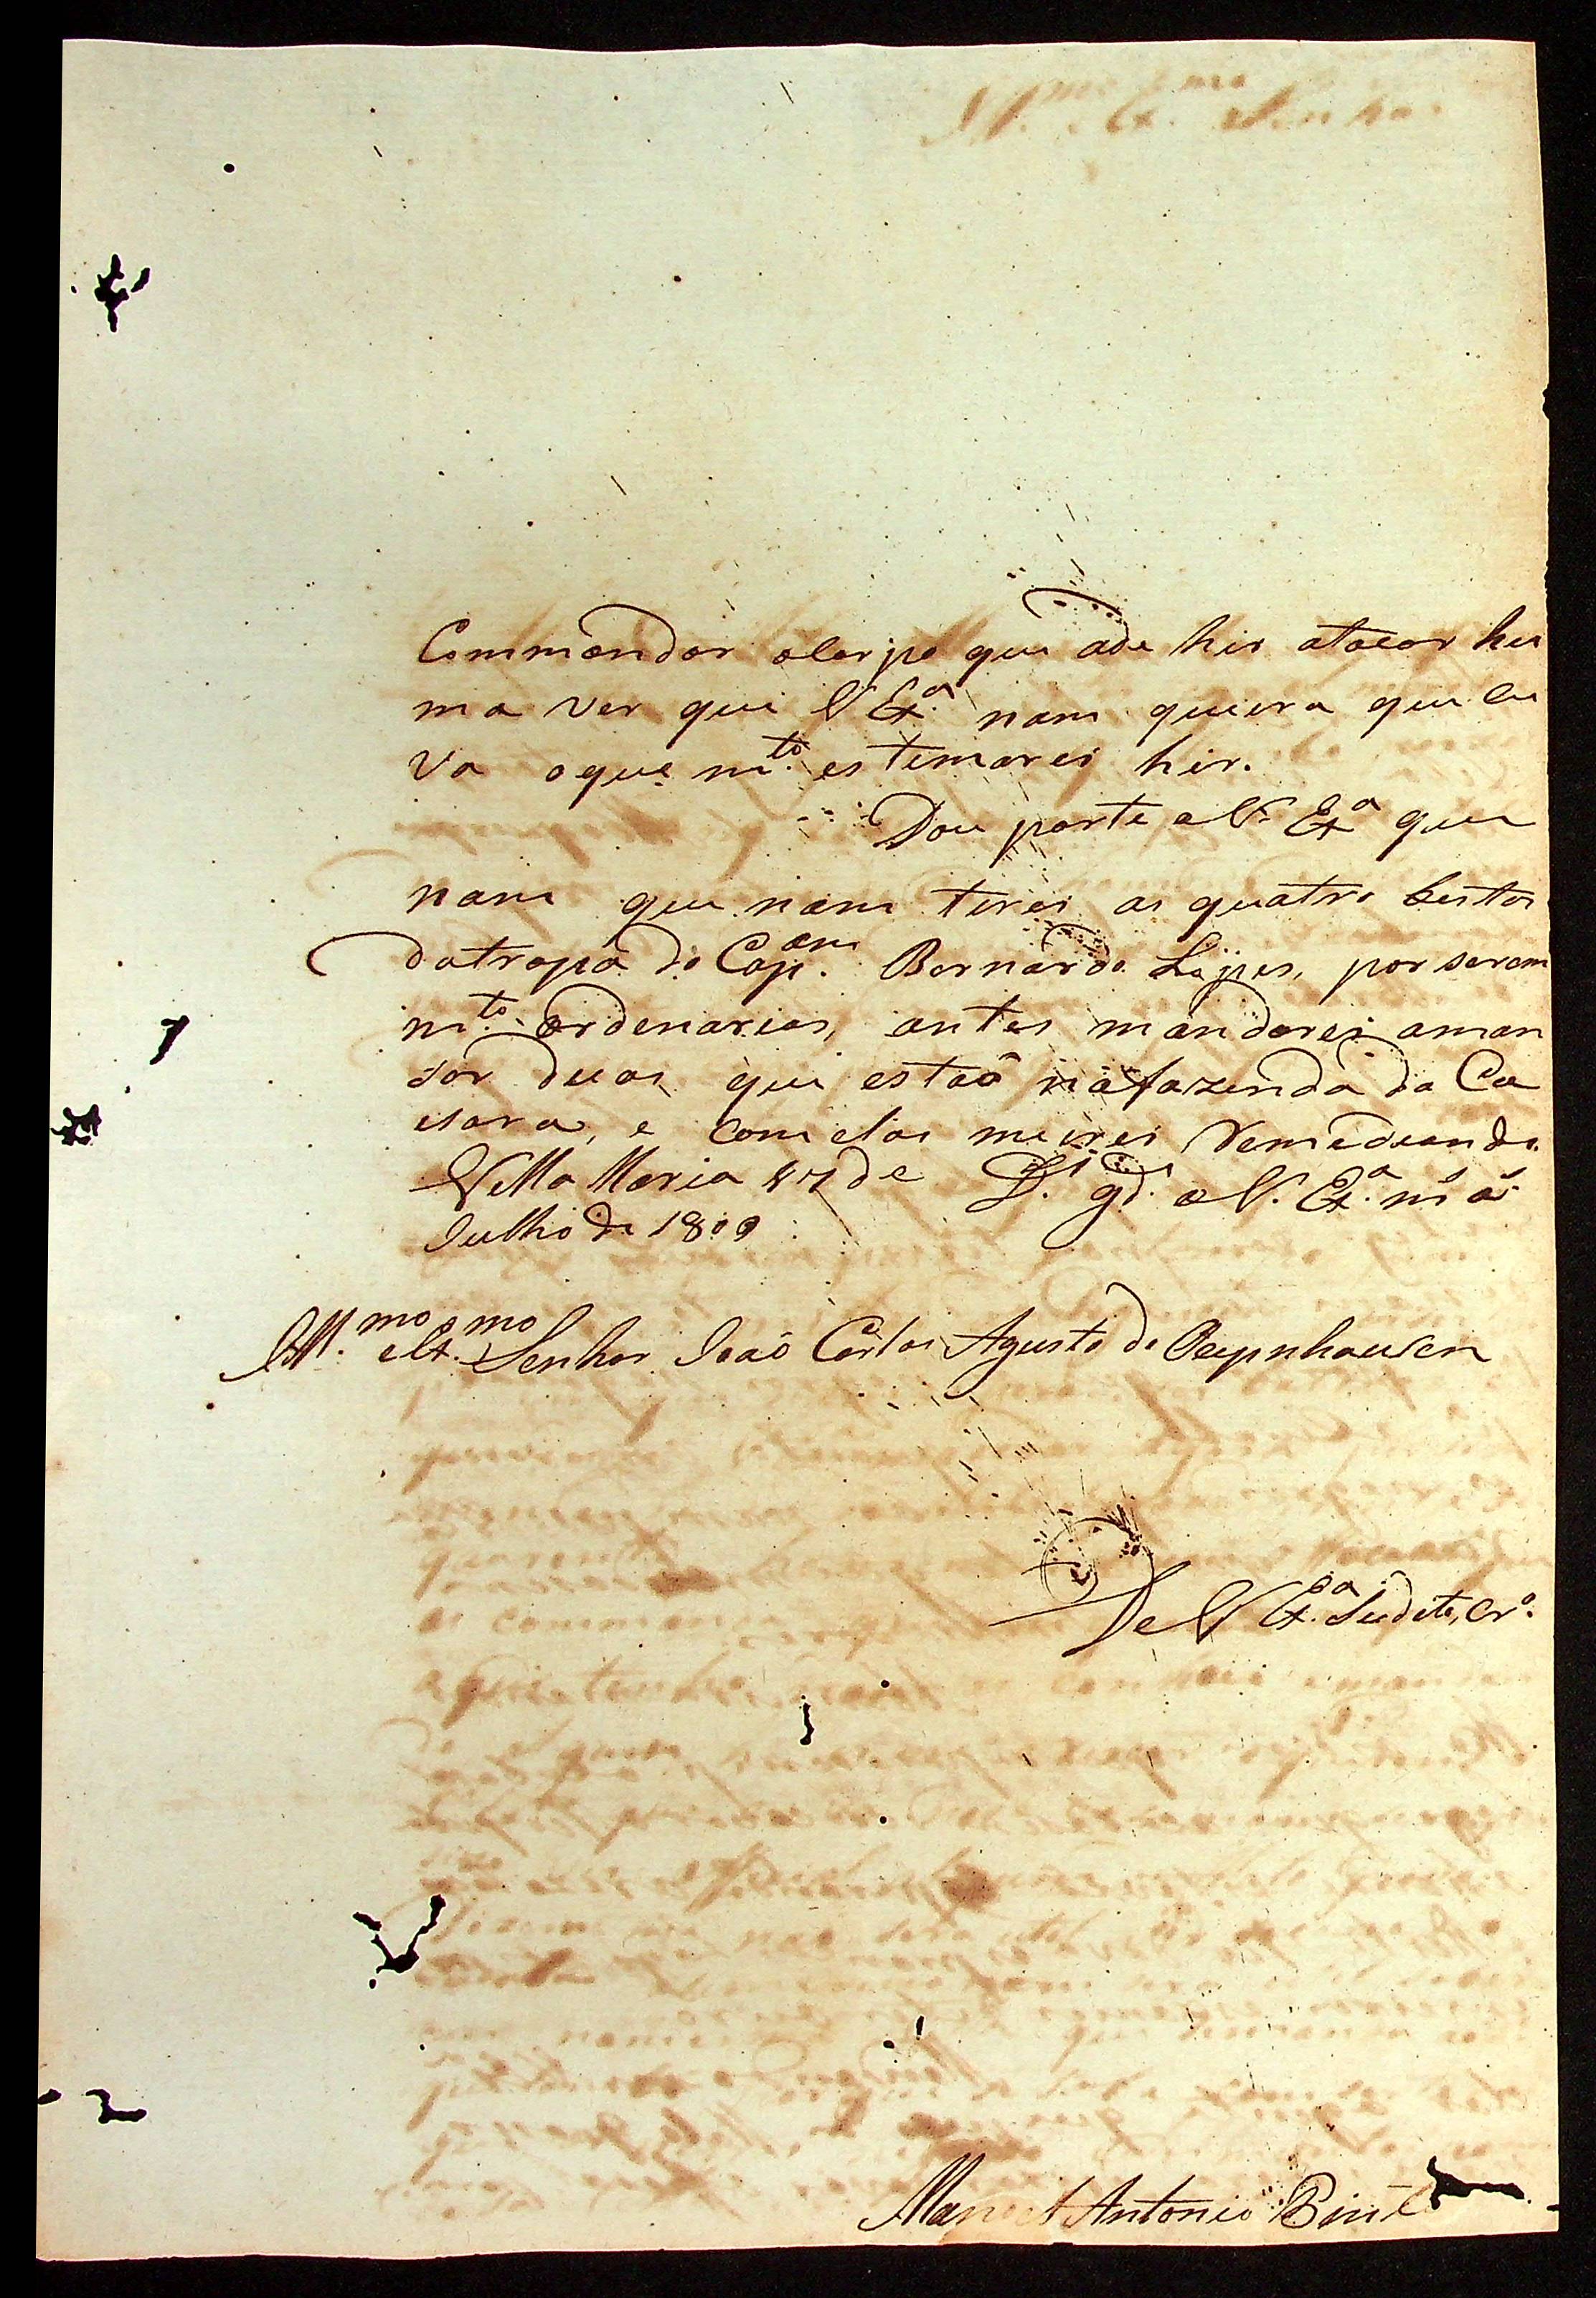 Ill.mo Ex.mo Senhor
Commandar alarpe que ade hir atacar hu
ma ver que V Ex.a nam quiera que eu
Va oque m.to estemarei hir.
Dou parte a V. Ex.a que
nam que nam terei as quatro bestas
datropa do Cap.am Bernardo Lopes, por serem
m.to ordenarias, antes mandarei aman
sar duas que estaõ nafazenda da Ca
isara, e com elas me irei Remedeando.
Villa Maria 27 de D.s g.de a V. Ex.a m.s a.s
Julho de 1809
Ill.mo e Ex.mo Senhor Joaõ Carlos Agusto de Oeynhausen
De V Ex.a Sudito, Cr.o
Manoel Antonio Pinto